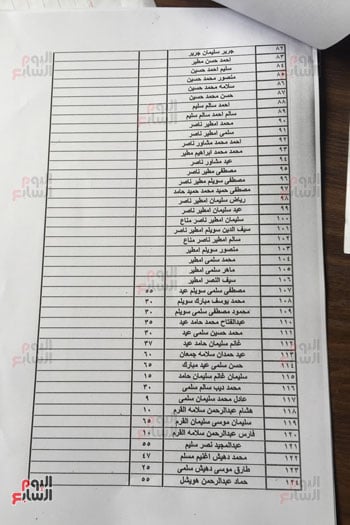 ٨٢ جرير سليمان جرير
٨٣ احمد حسن مطير
٨٤ سليم احمد حسين
٨٥ منصور محمد حسين
٨٦ سلامه محمد حسين
٨٧ حسن محمد حسين
٨٨ احمد سالم سليم
٨٩ سالم احمد سالم سليم
٩٠ محمد امطير ناصر
٩١ سلمى امطير ناصر
٩٢ احمد محمد مشاور ناصر
٩٣ محمد محمد ابراهيم مطير
٩٤ عيد مشاور ناصر
٩٥ مصطفى مطير ناصر
٩٦ مصطفى سويلم مطير ناصر
٩٧ مصطفى حميد محمد حميد حامد
٩٨ رياض سليمان امطير ناصر
٩٩ عيد سليمان امطير ناصر
١٠٠ سليمان امطير ناصر مناع
١٠١ سيف الدين سويلم امطير ناصر
١٠٢ سالم امطير ناصر مناع
١٠٣ منصور سويلم امطير
١٠٤ محمد سلمى امطير
١٠٥ ماهر سلمى امطير
١٠٦ سيف النصر امطير
١٠٧ مصطفى سلمى سويلم عيد ٥٥
١٠٨ محمد يوسف مبارك سويلم ٣٠
١٠٩ محمود مصطفى سلمى سويلم ٣٠
١١٠ عبدالفتاح محمد حامد عيد ٣٥
١١١ محمد حسين سلمى عيد ٣٠
١١٢ غانم سليمان حامد عيد ٣٧
١١٣ عيد حمدان سلامه جمعان ٦٠
١١٤ حسن سلمى عيد مبارك ٦٥
١١٥ سليمان غانم سليمان حامد ١٥
١١٦ محمد ديب سالم سلمى ٣٠
١١٧ عادل محمد سليمان سلمى ٩
١١٨ هشام عبدالرحمن سلامه القرم ١٠
١١٩ سليمان موسى سليمان القرم ١٥
١٢٠ فارس عبدالرحمن سلامه القرم ١٠
١٢١ عبدالمجيد نصر سليم ٥٥
١٢٢ محمد دهيش اغنيم مسلم ٤٧
١٢٣ طارق موسى دهيش سلمى ٢٥
١٢٤ حماد عبدالرحمن هويشل ٥٥
اليوم السابع
اليوم السابع
اليوم السابع
اليوم السابع
اليوم السابع
اليوم السابع